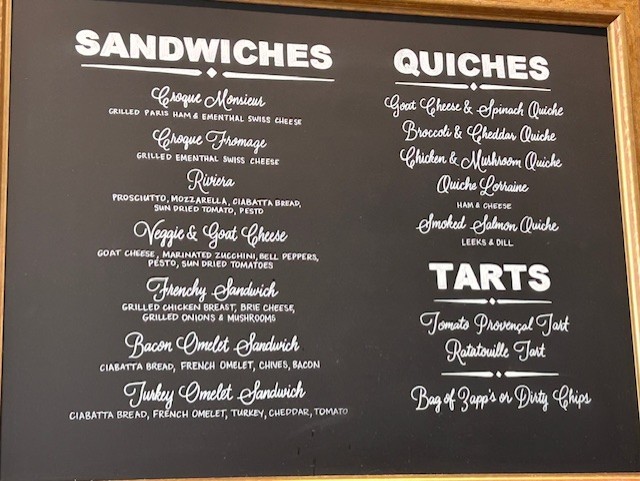 SANDWICHES
Croque Monsieur
GRILLED PARIS HAM & EMENTHAL SWISS CHEESE
Croque Fromage
GRILLED EMENTHAL SWISS CHEESE
Riviera
PROSCIUTTO, MOZZARELLA, CIABATTA BREAD,
SUN DRIED TOMATO, PESTO
Veggie & Goat Cheese
GOAT CHEESE, MARINATED ZUCCHINI, BELL PEPPERS,
PESTO, SUN DRIED TOMATOES
Frenchy Sandwich
GRILLED CHICKEN BREAST, BRIE CHEESE,
GRILLED ONIONS & MUSHROOMS
Bacon Omelet Sandwich
CIABATTA BREAD, FRENCH OMELET, CHIVES, BACON
Turkey Omelet Sandwich
CIABATTA BREAD, FRENCH OMELET, TURKEY, CHEDDAR, TOMATO
QUICHES
Goat Cheese & Spinach Quiche
Broccoli & Cheddar Quiche
Chicken & Mushroom Quiche
Quiche Lorraine
HAM & CHEESE
Smoked Salmon Quiche
LEEKS & DILL
TARTS
Tomato Provençal Tart
Ratatouille Tart
Bag of Zapp's or Dirty Chips